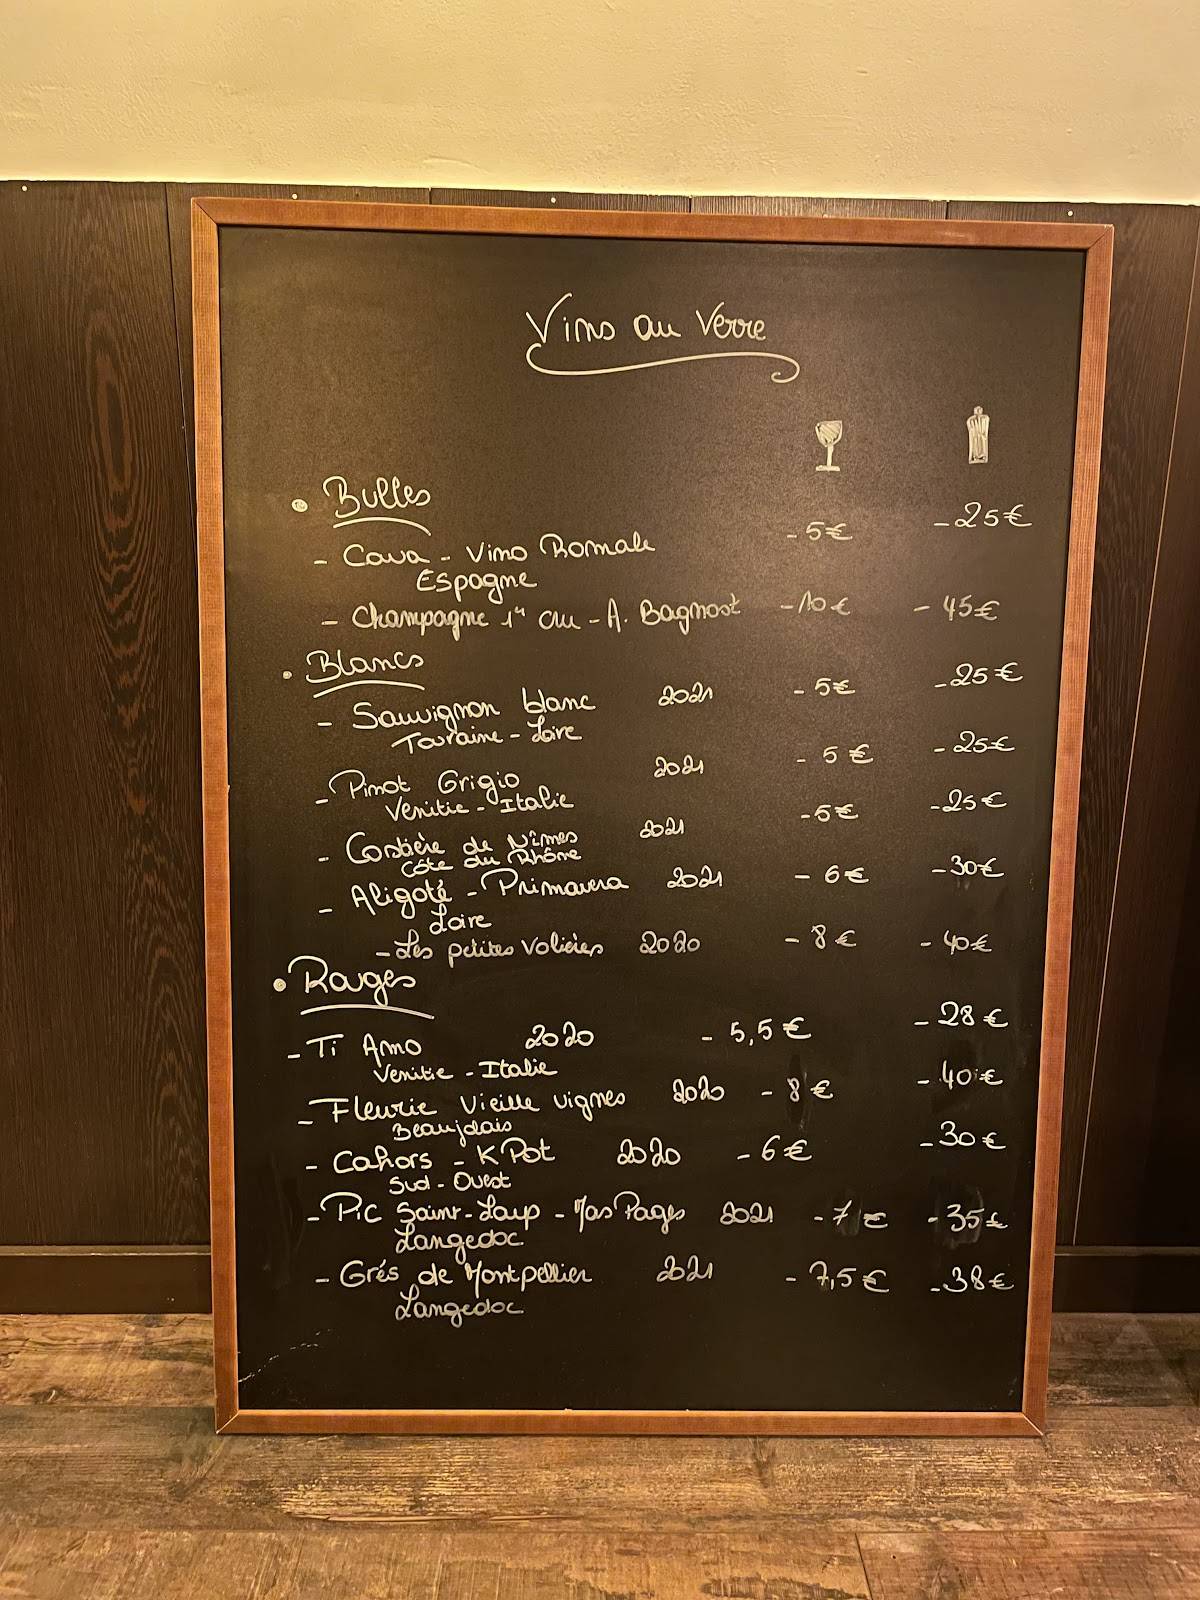 Vins au Verre
• Bulles
- Cava - Vino Romale - 5€ - 25€
Espagne
- Champagne 1er cru - A. Bagnost - 10€ - 45€
• Blancs
- Sauvignon blanc 2021 - 5€ - 25€
Touraine - Loire
- Pinot Grigio 2021 - 5€ - 25€
Vénitie - Italie
- Costière de Nîmes 2021 - 5€ - 25€
Côte du Rhône
- Aligoté - Primavera 2021 - 6€ - 30€
Loire
- Les petites Volières 2020 - 8€ - 40€
• Rouges
- Ti Amo 2020 - 5,5€ - 28€
Venitie - Italie
- Fleurie Vieille vignes 2020 - 8€ - 40€
Beaujolais
- Cahors - K Pot 2020 - 6€ - 30€
Sud - Ouest
- Pic Saint-Loup - Mas Pages 2021 - 7€ - 35€
Langedoc
- Grés de Montpellier 2021 - 7,5€ - 38€
Langedoc